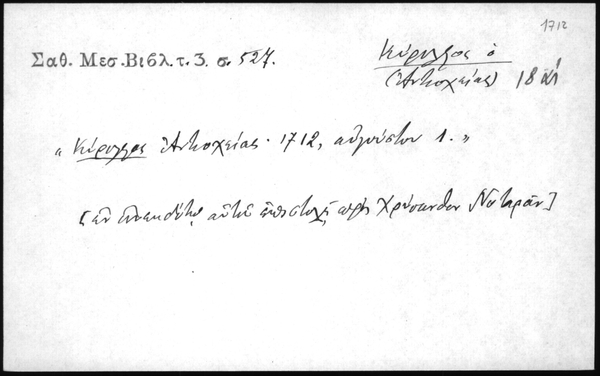 1712
Σαθ. Μεσ. Βιβλ. τ. 3. σ. 527.
Κύριλλος ὁ
(Ἀντιοχείας) 18 αἰ
“Κύριλλος Ἀντιοχείας· 1712, αὐγούστου 1.”
[ἐν ἀνεκδότῳ αὐτοῦ ἐπιστολῇ πρὸς Χρύσανθον Νοταρᾶν]